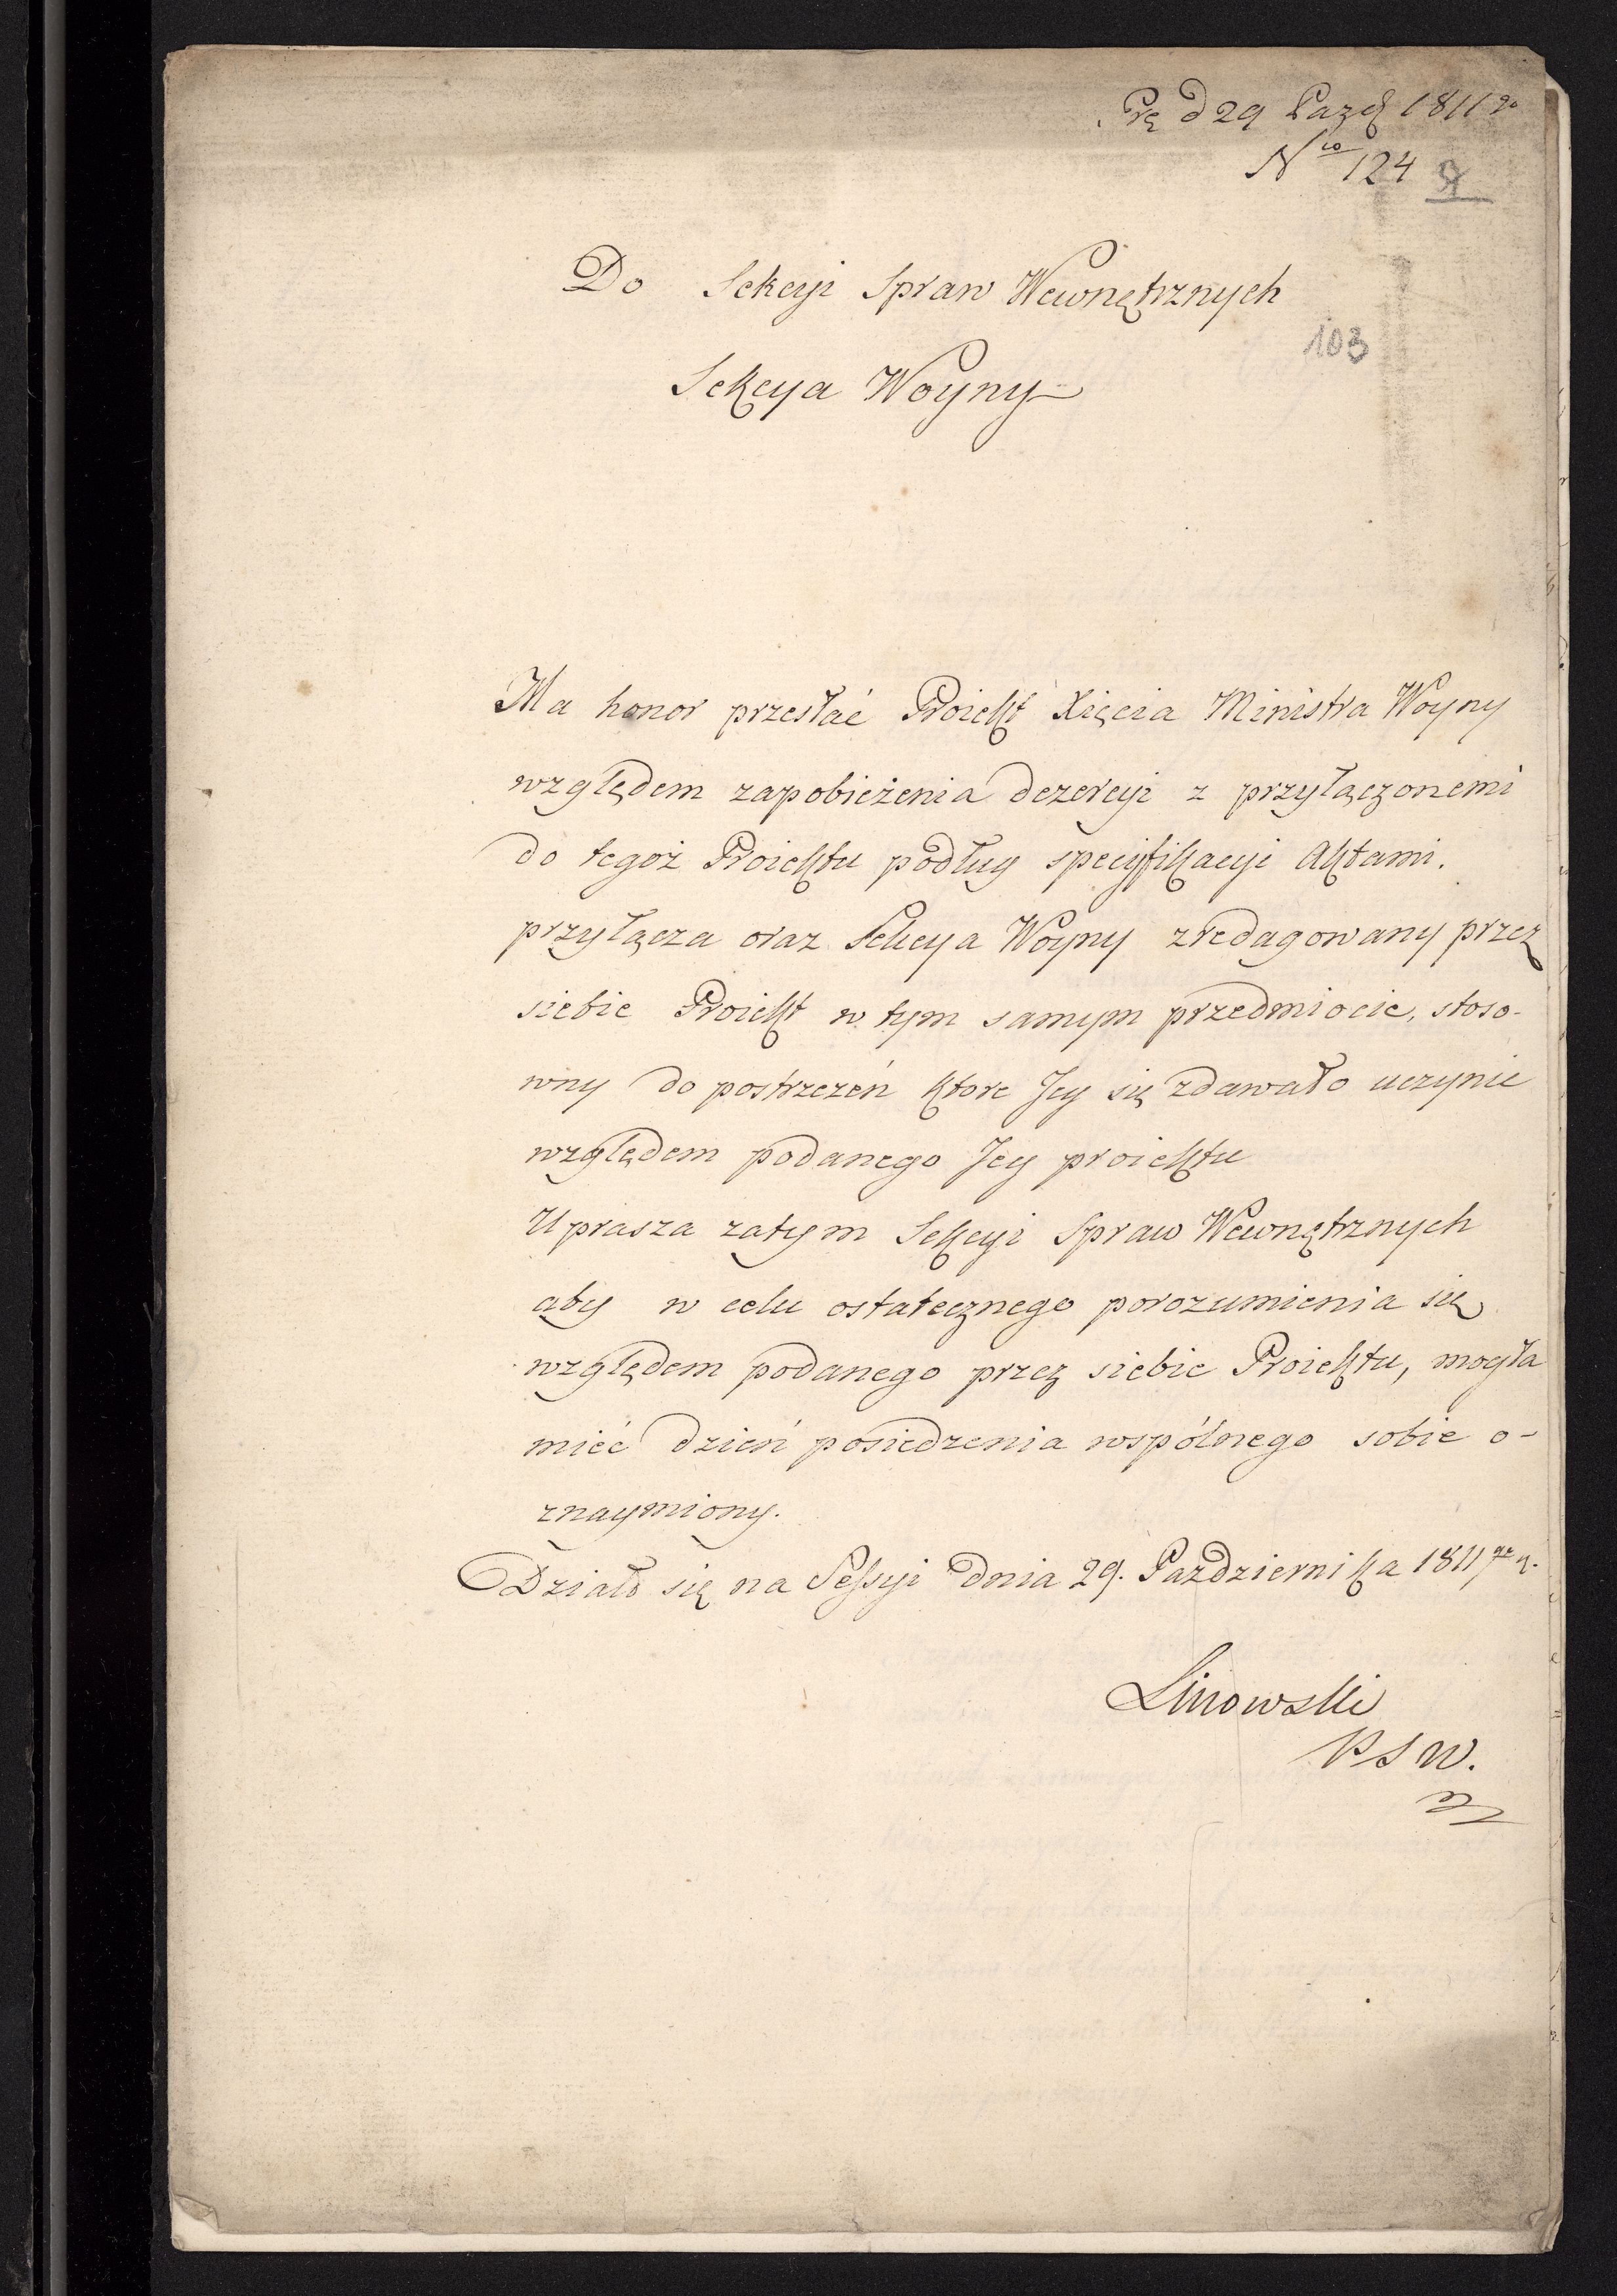 d 29 Pazd 1811 go
Nro 124
Do Sekcyi Spraw Wewnętrznych
103
Sekcya Woyny
Ma honor przesłać Proiekt Xięcia Ministra Woyny
względem zapobieżenia dezercyi z przyłączonemi
do tegoż Proiektu podług specyfikacyi Aktami.
przyłącza oraz Sekcya Woyny zredagowany przez
siebie Proiekt w tym samym przedmiocie, stoso-
wny do postrzezeń ktore Jey się zdawało uczynic
względem podanego Jey proiektu
Uprasza zatym Sekcyi Spraw Wewnętrznych
aby w celu ostatecznego porozumienia się
względem podanego przez siebie Proiektu, mogła
mieć dzień posiedzenia wspólnego sobie o-
znaymiony.
Działo się na Sessyi dnia 29. Pazdziernika 1811 go r.
Linowski
PSW.